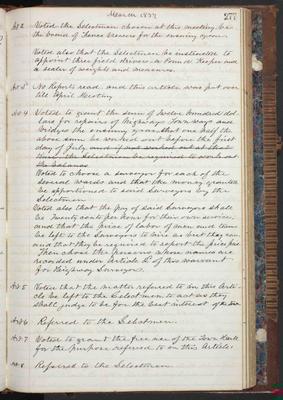 March 1877
277
Art 2 Voted the Selectmen chosen at this meeting be
the board of Fence Viewers for the ensuing year.
Voted also that the Selectmen be instructed to
appoint three field drivers a Pound Keeper and
a sealer of weights and measures.
Art 3 No Reports read and this article was put over
till April Meeting
Art 4 Voted to grant the sum of Twelve hundred dol
lars for repairs of Highways Town ways and
Bridges the ensuing year. that one half the
above sum be worked out before the first
day of July and if not worked out at that
time the Selectmen be required to work out
the balance
Voted to choose a surveyor for each of the
several wards and that the money granted
be apportioned to said Surveyors by the
Selectmen
Voted also that the pay of said Surveyors shall
be Twenty cents per hour for their own services,
and that the price of labor of men and teams
be left to the Surveyors to hire as best they can
and that they be required to report the price paid
Then chose the persons whose names are
recorded under Article 1st of this warrant
for Highway Surveyors.
Art 5 Voted that the matter referred to in this Arti-
cle be left to the Selectmen to act as they
shall judge to be for the best interest of the Town
Art 6 Referred to the Selectmen.
Art 7 Voted to grant the free use of the Town Hall
for the purpose referred to in this Article.
Art 8 Referred to the Selectmen